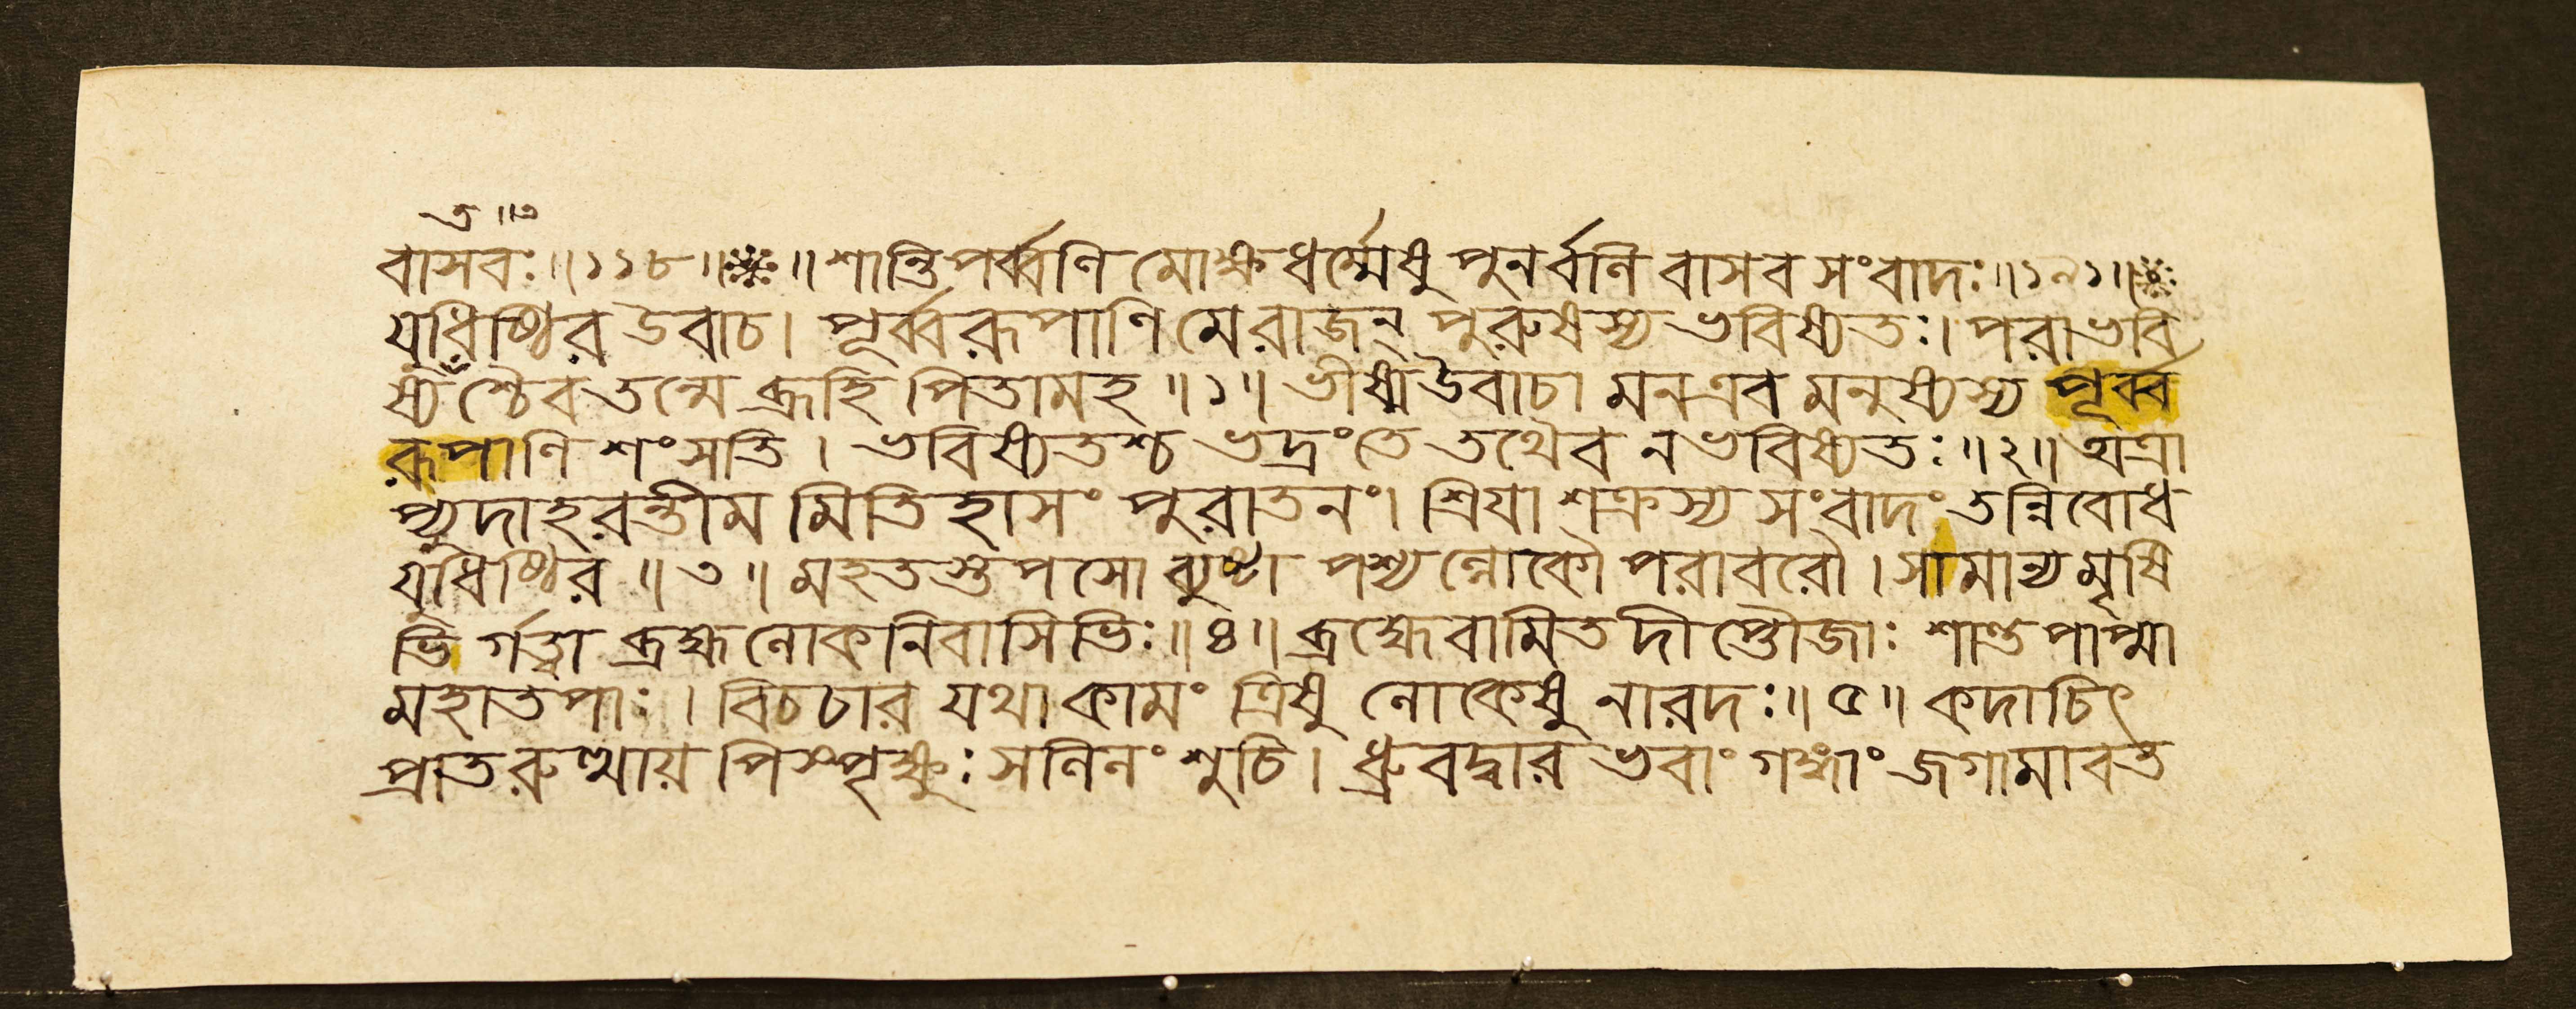 ত ॥৩
বাসবঃ॥১১৮॥ ॥শান্তিপর্ব্বণি মোক্ষধর্ম্মেষু পুনর্বলি বাসব সংবাদঃ॥১৯১॥
যুধিষ্ঠির উবাচ। পূর্ব্বরূপাণি মে রাজন্ পুরুষস্য ভবিষ্যতঃ। পরাভবি
ষ্যতশ্চৈব তন্মে ব্রূহি পিতামহ॥১॥ ভীষ্ম উবাচ। মন এব মনুষ্যস্য পূর্ব্ব
রূপাণি শংসতি। ভবিষ্যতশ্চ ভদ্রং তে তথৈব ন ভবিষ্যতঃ॥২॥ অত্রা
প্যুদাহরন্তীম মিতিহাসং পুরাতনং। শ্রিয়া শক্রস্য সংবাদং তন্নিবোধ
যুধিষ্ঠির॥৩॥ মহতস্তপসো ব্যুষ্ট্যা পশ্যল্লোকৌ পরাবরৌ। সামান্যমৃষি
ভি র্গত্বা ব্রহ্মলোকনিবাসিভিঃ॥৪॥ ব্রহ্মেবামিতদীপ্তৌজাঃ শান্তপাপ্মা
মহাতপাঃ। বিচচার যথাকামং ত্রিষু লোকেষু নারদঃ॥৫॥ কদাচিৎ
প্রাতরুত্থায় পিস্পৃক্ষুঃ সলিলং শুচি। ধ্রুবদ্বার ভবাং গঙ্গাং জগামাবত